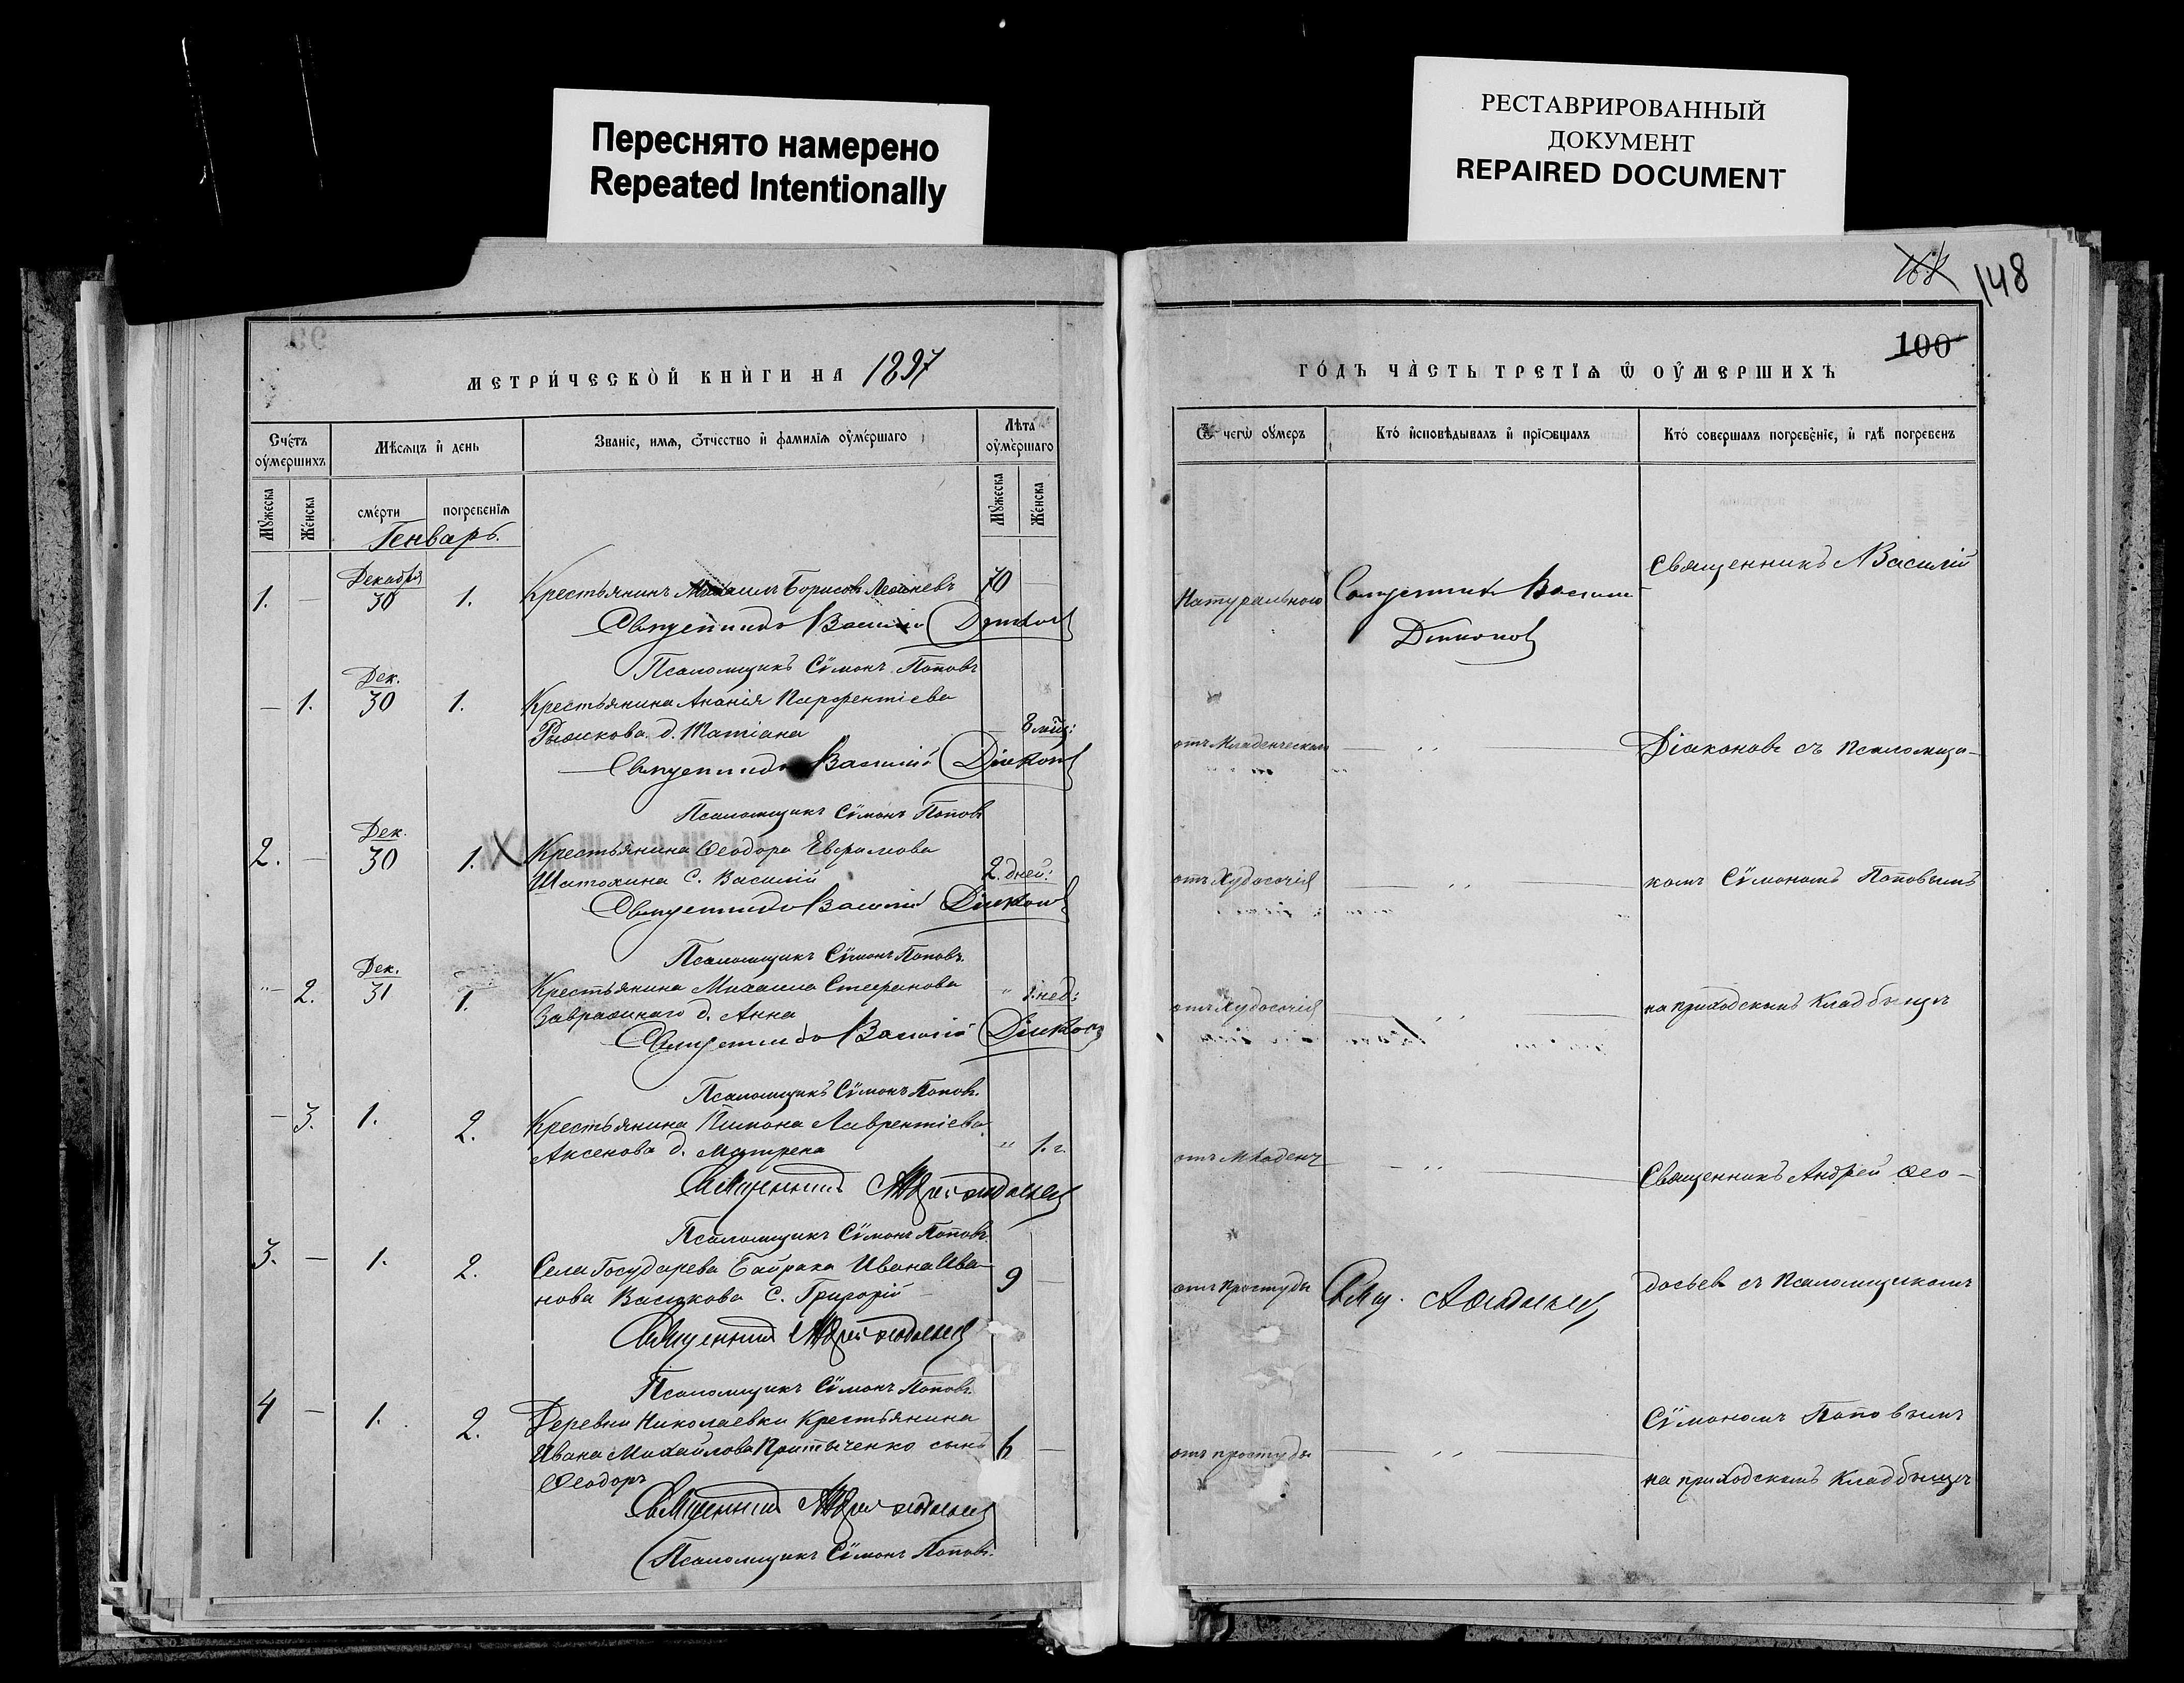 Переснято намерено
Repeated Intentionally
РЕСТАВРИРОВАННЫЙ
ДОКУМЕНТ
REPAIRED DOCUMENT
148
100
МЕТРИ́ЧЕСКОЙ КНИ́ГИ НА 1897
ГО́ДЪ ЧА́СТЬ ТРЕТІѦ Ѿ ОУ҆МЕРШИХЪ
Сче́тъ оу҆ме́ршихъ
Мѣсѧцъ и҆ день
Званіе, имѧ, ѻтчество и҆ фамиліѧ оу҆ме́ршаго
Лѣта оу҆ме́ршаго
Мꙋжеска
Женска
сме́рти
погребеніѧ
Мꙋжеска
Женска
Генварь.
Ѿ чегѡ оу҆меръ
Кто́ и҆сповѣдывалъ и҆ прїѡбщалъ
Кто́ совершалъ погребе́ніе, и҆ гдѣ погребенъ
1. — Декабря 30 1. Крестьянинъ Михаилъ Борисовъ 70 —
Священникъ Василій Дьяконовъ
Псаломщикъ Сѵмонъ Поповъ
Натурального Священникъ Василій
Дьяконовъ
Священникъ Василій
— 1. Дек. 30 1. Крестьянина Ананія Парфентіева
Рыжкова д. Татіана 8 мѣц:
Священникъ Василій Дьяконовъ
Псаломщикъ Сѵмонъ Поповъ
отъ Младенческой — „ —
Діаконовъ съ Псаломщи-
2. — Дек. 30 1. Крестьянина Ѳеодора Ефремова
Шатохина С. Василій 2. дней:
Священникъ Василій Дьяконовъ
Псаломщикъ Сѵмонъ Поповъ.
отъ Худосочія — „ —
комъ Сѵмономъ Поповымъ
„ 2. Дек. 31 1. Крестьянина Михаила Стефанова
Завражнаго д. Анна „ 1. нед:
Священникъ Василій Дьяконовъ
Псаломщикъ Сѵмонъ Поповъ.
отъ Худосочія — „ —
на приходскомъ кладбищѣ
— 3. 1. 2. Крестьянина Пимона Лаврентіева
Аксенова д. Матрена „ 1. г.
Священникъ Андрей Ѳеодосьевъ
Псаломщикъ Сѵмонъ Поповъ.
отъ Младенч — „ —
Священникъ Андрей Ѳео-
3. — 1. 2. Села Государева Байрака Ивана Ива-
нова Васюкова С. Григорій 9 —
Священникъ Андрей Ѳеодосьевъ
Псаломщикъ Сѵмонъ Поповъ.
отъ Простуды Свящ. А Ѳеодосьевъ
досьев съ Псаломщикомъ
4 — 1. 2. Деревни Николаевки Крестьянина
Ивана Михайлова сынъ 6 —
Ѳеодоръ
Священникъ Андрей Ѳеодосьевъ
Псаломщикъ Сѵмонъ Поповъ.
отъ простуды — „ —
Сѵмономъ Поповымъ
на приходскомъ кладбищѣ